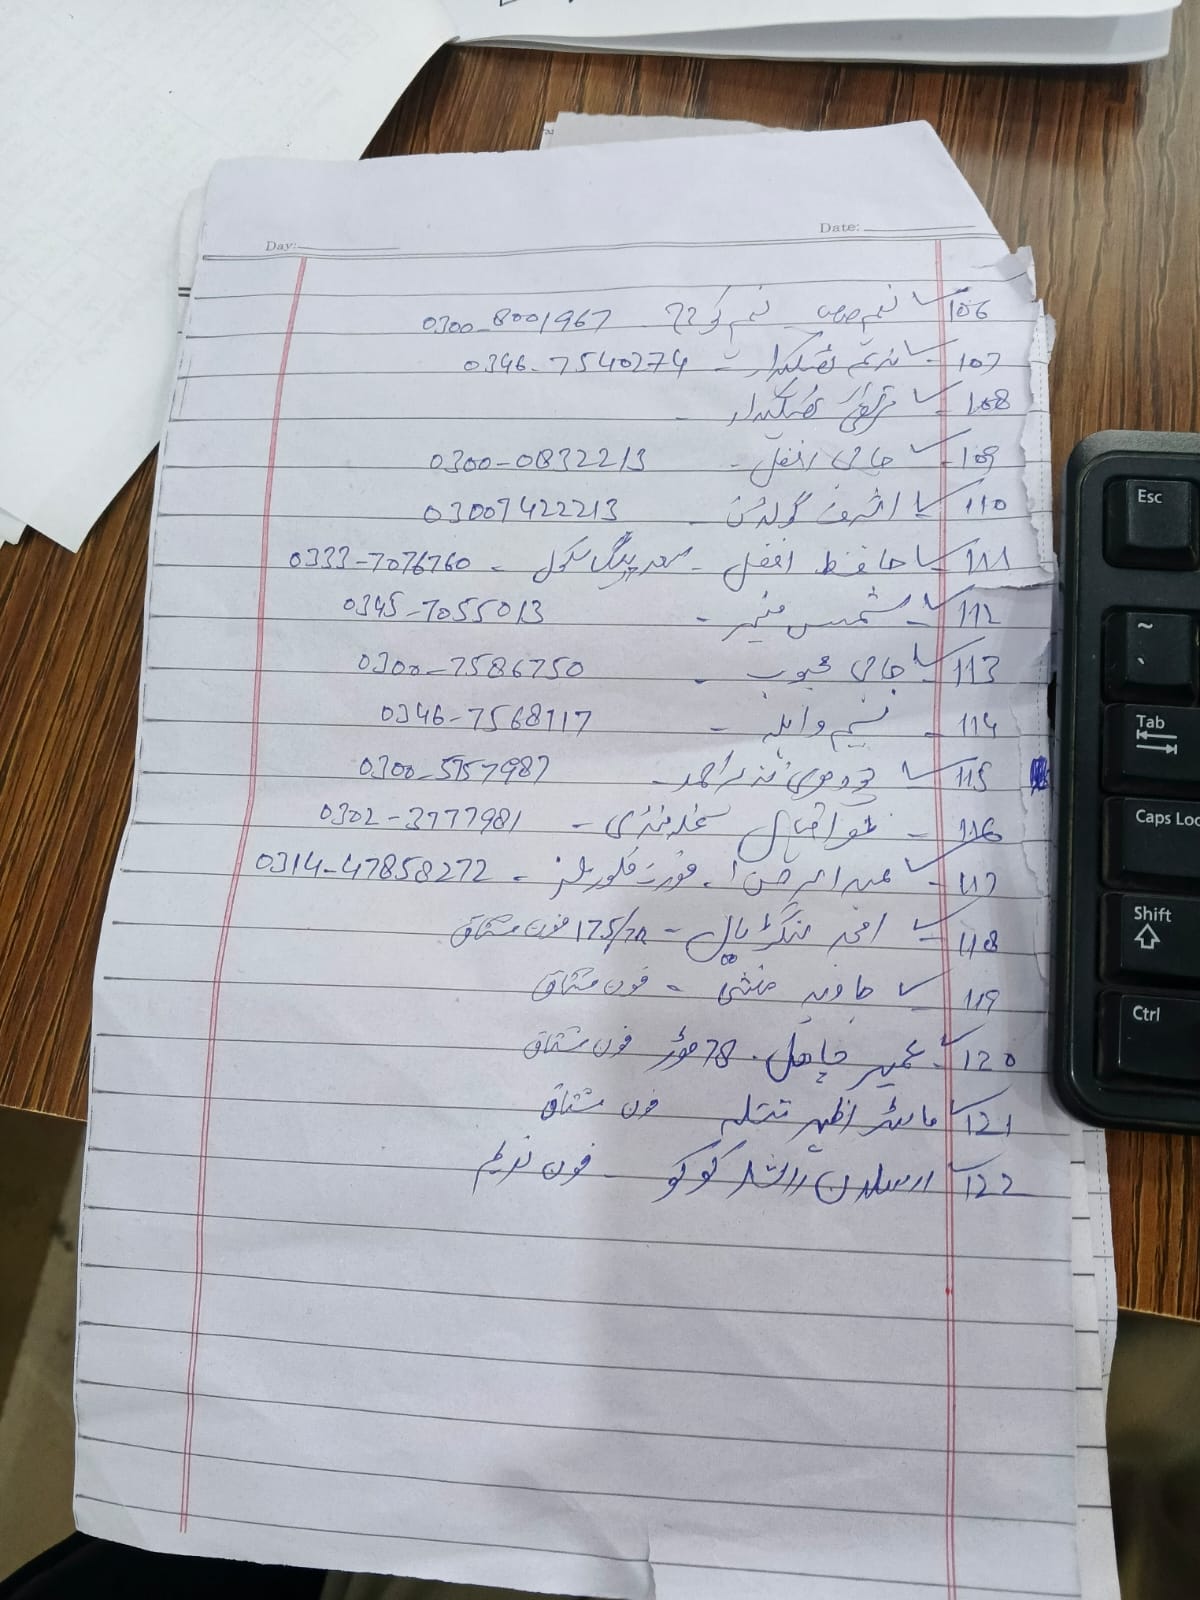 Day:
Date:
106 نعیم 0300-8001967
107 ندیم ٹھیکیدار - 0346-7540274
108 ٹھیکیدار -
109 حاجی افضل - 0300-0832213
110 اشرف گولڈن - 03007422213
111 حافظ افضل - سکول - 0333-7076760
112 شمس منیر - 0345-7055013
113 حاجی محبوب - 0300-7586750
114 - نسیم واپڈا - 0346-7568117
115 چودھری نذیر احمد - 0300-5957987
116 - ظفر اقبال غلہ منڈی - 0302-3777981
117 - عبدالرحمن فلور ملز - 0314-47858272
118 - 175/ فون مشتاق
119 جاوید منشی - فون مشتاق
120 عمیر 78 موڑ فون مشتاق
121 ماسٹر اظہر فون مشتاق
122 ارسلان راشد کوکو - فون ندیم
Esc
~
Tab
Caps Loc
Shift
Ctrl